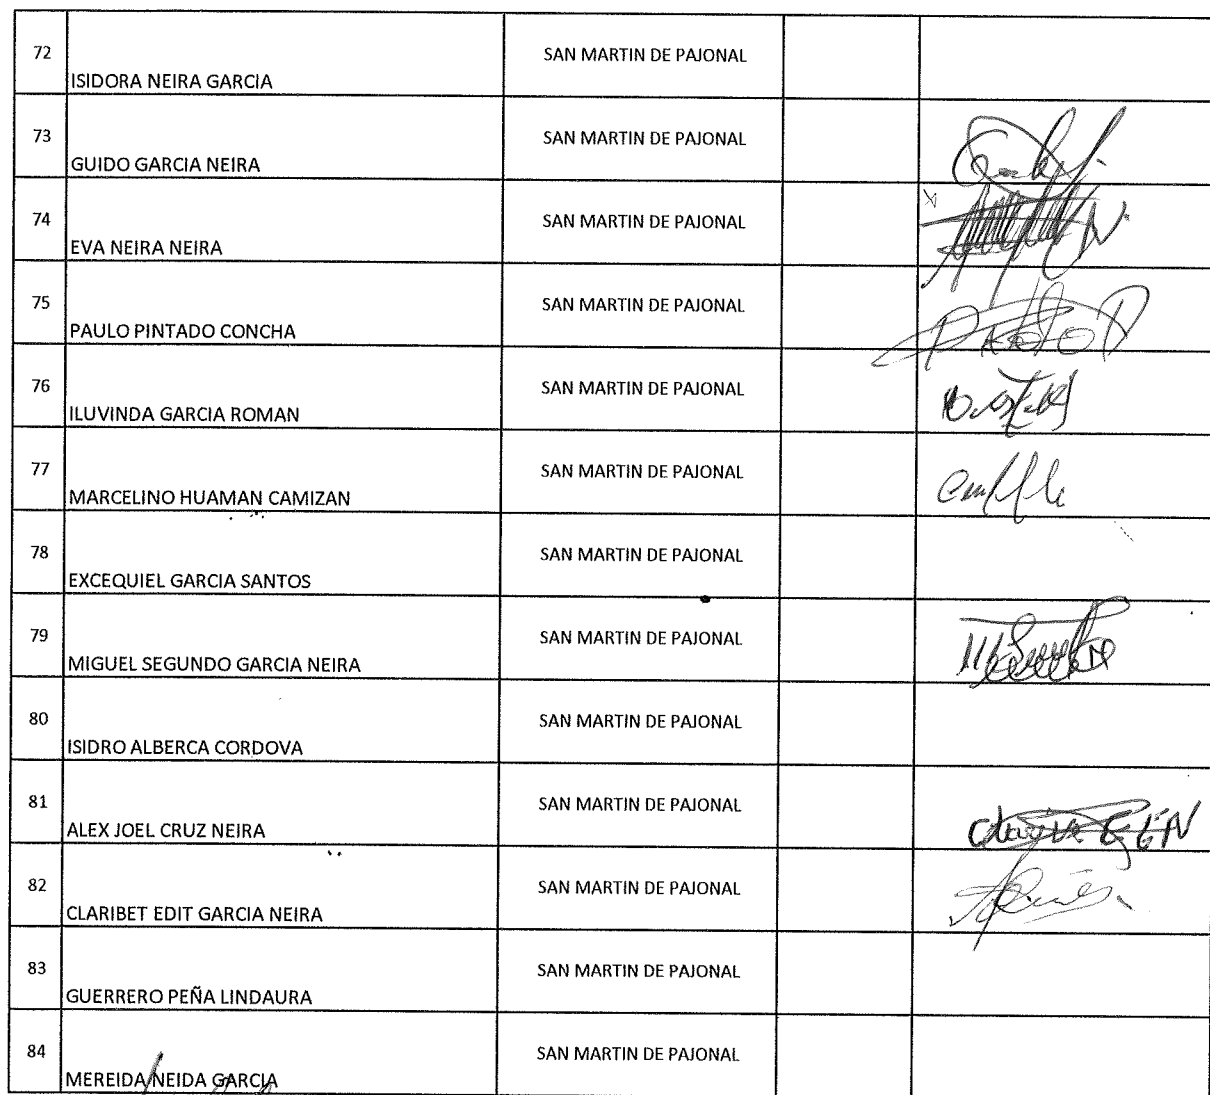 72 ISIDORA NEIRA GARCIA SAN MARTIN DE PAJONAL
73 GUIDO GARCIA NEIRA SAN MARTIN DE PAJONAL
74 EVA NEIRA NEIRA SAN MARTIN DE PAJONAL
75 PAULO PINTADO CONCHA SAN MARTIN DE PAJONAL
76 ILUVINDA GARCIA ROMAN SAN MARTIN DE PAJONAL
77 MARCELINO HUAMAN CAMIZAN SAN MARTIN DE PAJONAL
78 EXCEQUIEL GARCIA SANTOS SAN MARTIN DE PAJONAL
79 MIGUEL SEGUNDO GARCIA NEIRA SAN MARTIN DE PAJONAL
80 ISIDRO ALBERCA CORDOVA SAN MARTIN DE PAJONAL
81 ALEX JOEL CRUZ NEIRA SAN MARTIN DE PAJONAL
82 CLARIBET EDIT GARCIA NEIRA SAN MARTIN DE PAJONAL
83 GUERRERO PEÑA LINDAURA SAN MARTIN DE PAJONAL
84 MEREIDA NEIDA GARCIA SAN MARTIN DE PAJONAL